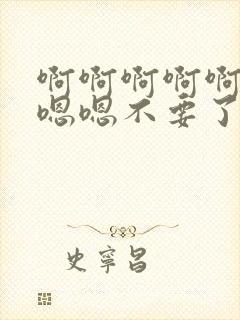 啊啊啊啊啊
嗯嗯不要了
史宁昌